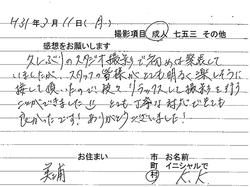 H31年3月11日(月)
撮影項目 成人 七五三 その他
感想をお願いします
久しぶりのスタジオ撮影で初めは緊張して
いましたが、スタッフの皆様がとても明るく楽しそうに
接して頂いたので、段々リラックスして撮影を行う
ことができました!! とても丁寧な対応でとても
良かったです! ありがとうございました!
お住まい
市 お名前
町 イニシャルで
村
美浦
K.K